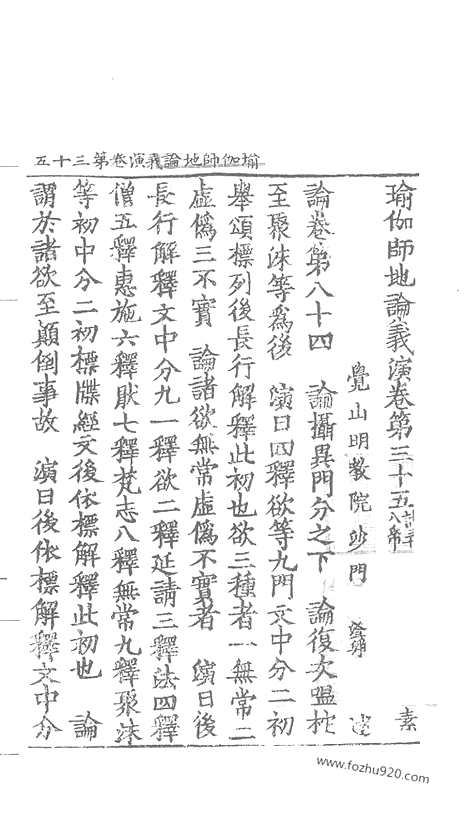 瑜伽師地論義演卷第三十五
瑜伽師地論義演卷第三十五 素
覺山明教院沙門 述
論卷第八十四 論攝異門分之下 論復次盥枕
至聚沫等爲後 演曰四釋欲等九門文中分二初
舉頌標列後長行解釋此初也欲三種者一無常二
虛僞三不實 論諸欲無常虛僞不實者 演曰後
長行解釋文中分九一釋欲二釋延請三釋法四釋
僧五釋惠施六釋猒七釋梵志八釋無常九釋聚沫
等初中分二初標牒經文後依標解釋此初也 論
謂於諸欲至顛倒事故 演曰後依標解釋文中分
www.fozhu920.com